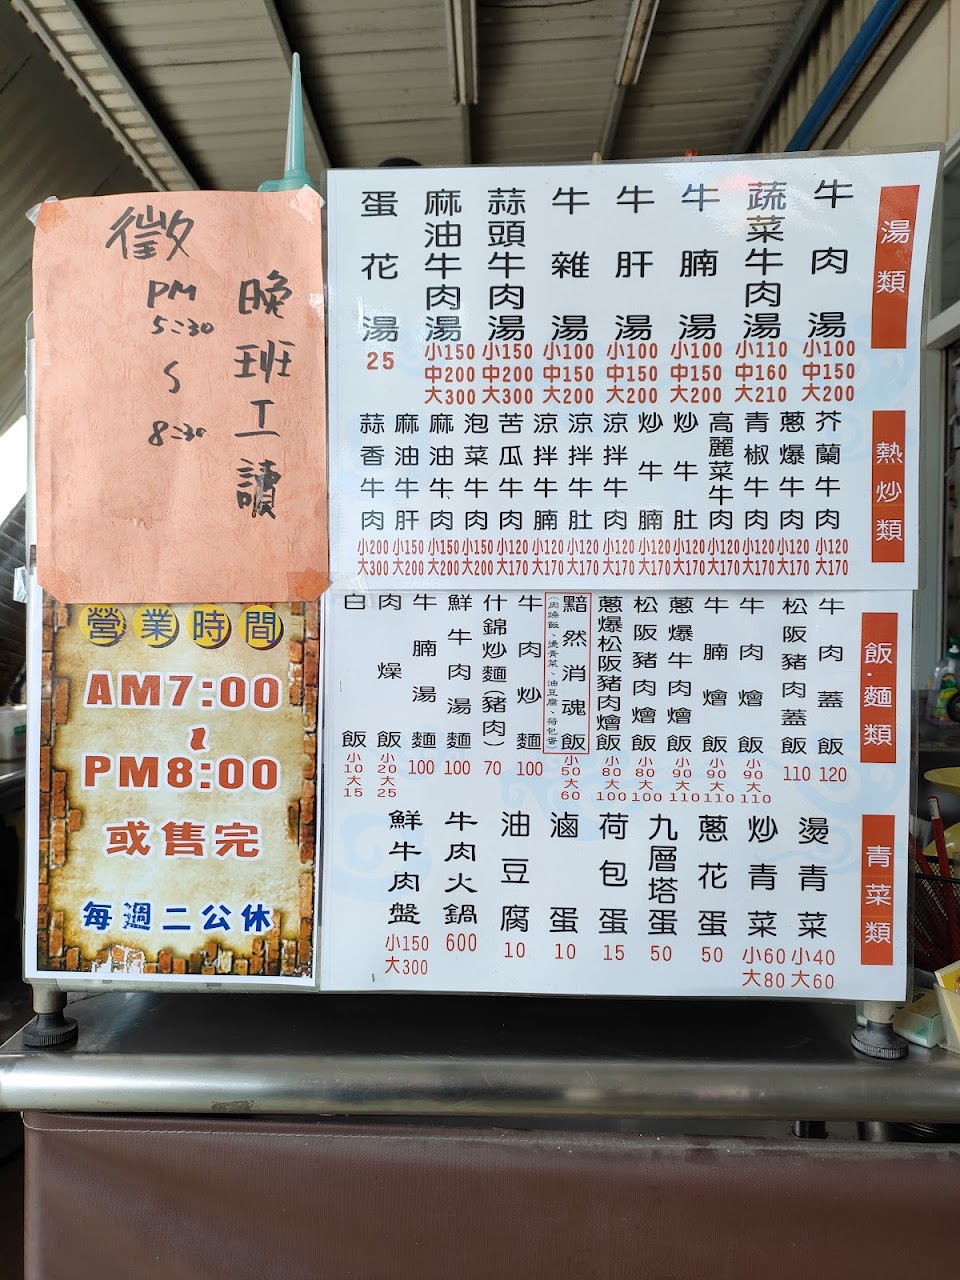 徵
晚班工讀
PM
5:30
~
8:30
營業時間
AM7:00
~
PM8:00
或售完
每週二公休
湯類
牛肉湯 小100 中150 大200
蔬菜牛肉湯 小110 中160 大210
牛腩湯 小100 中150 大200
牛肝湯 小100 中150 大200
牛雜湯 小100 中150 大200
蒜頭牛肉湯 小150 中200 大300
麻油牛肉湯 小150 中200 大300
蛋花湯 25
熱炒類
芥蘭牛肉 小120 大170
蔥爆牛肉 小120 大170
青椒牛肉 小120 大170
高麗菜牛肉 小120 大170
炒牛肚 小120 大170
炒牛腩 小120 大170
涼拌牛肉 小120 大170
涼拌牛肚 小120 大170
涼拌牛腩 小120 大170
苦瓜牛肉 小120 大170
泡菜牛肉 小150 大200
麻油牛肉 小150 大200
麻油牛肝 小150 大200
蒜香牛肉 小200 大300
飯.麵類
牛肉蓋飯 120
松阪豬肉蓋飯 110
牛肉燴飯 小90 大110
牛腩燴飯 小90 大110
蔥爆牛肉燴飯 小90 大110
松阪豬肉燴飯 小80 大100
蔥爆松阪豬肉燴飯 小80 大100
黯然消魂飯 小50 大60
(肉燥飯、燙青菜、油豆腐、荷包蛋)
牛肉炒麵 100
什錦炒麵(豬肉) 70
鮮牛肉湯麵 100
牛腩湯麵 100
肉燥飯 小20 大25
白飯 小10 大15
青菜類
燙青菜 小40 大60
炒青菜 小60 大80
蔥花蛋 50
九層塔蛋 50
荷包蛋 15
滷蛋 10
油豆腐 10
牛肉火鍋 600
鮮牛肉盤 小150 大300